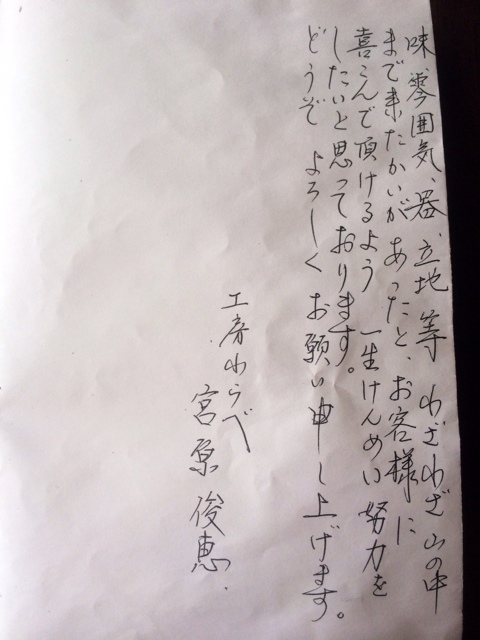 味、雰囲気、器、立地等 わざわざ山の中
まで来たかいがあったと、お客様に
喜こんで頂けるよう 一生けんめい努力を
したいと思っております。
どうぞ よろしく お願い申し上げます。
工房わらべ
宮原俊恵